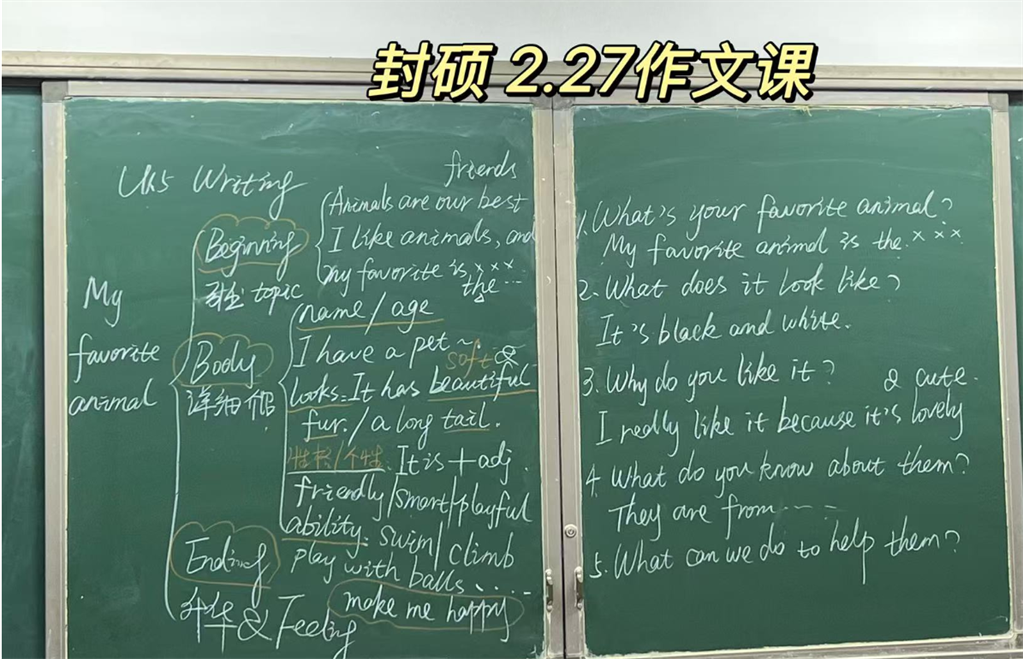 封硕 2.27作文课
Writing
My
favorite
animal
Beginning
topic
Animals are our best
friends
I like animals, and
my favorite is ×××
the...
Body
详细介绍
name/age
I have a pet ~.
soft &
looks: It has beautiful
fur. / a long tail.
性格/个性. It is + adj.
friendly/smart/playful
ability: swim/climb
play with balls......
Ending
升华 & Feeling
make me happy
1. What's your favorite animal?
My favorite animal is the ×××.
2. What does it look like?
It is black and white.
3. Why do you like it?
& cute.
I really like it because it's lovely
4. What do you know about them?
They are from ......
5. What can we do to help them?